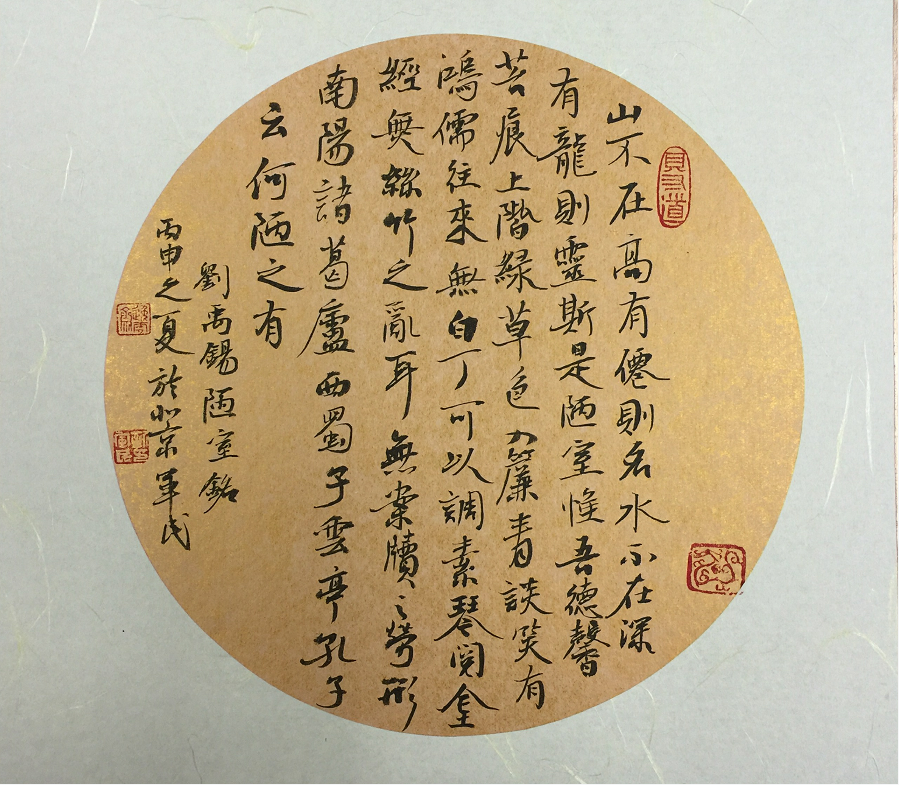 山不在高有僊則名水不在深
有龍則靈斯是陋室惟吾德馨
苔痕上階緑草色入簾青談笑有
鴻儒往來無白丁可以調素琴閱金
經無絲竹之亂耳無案牘之勞形
南陽諸葛廬西蜀子雲亭孔子
云何陋之有
劉禹錫陋室銘
丙申之夏於北京軍民